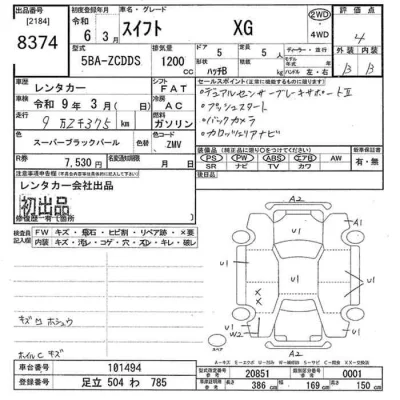 出品番号 [2184] 8374
初度登録年月 令和 6年 3月
車名・グレード スイフト XG
2WD 4WD
評価点 4
型式 5BA-ZCDDS
排気量 1200 cc
ドア 5 ハッチB
定員 5人
ディーラー・並行
モデル年式 年
ハンドル 左・右
外装 内装
B B
車歴 レンタカー
シフト FAT
セールスポイント(正常に機能するものに限ります)
・デュアルセンサーブレーキサポートⅡ
・プッシュスタート
・バックカメラ
車検 令和 9年 3月(まで)
冷房 AC
走行 9万2千375 km
燃料 ガソリン
色 スーパーブラックパール
色替
色コード ZMV
R 7,530 円
名変期限
新車保証書 有・無
装備品
PS PW ABS エアB AW
SR ナビ TV カワ
注意事項申告欄
レンタカー会社出品
初出品
修復歴 有(箇所)
検査員記入欄
FW キズ・飛石・ヒビ割・リペア跡・×要
内装 キズ・汚レ・コゲ・穴・スレ・キレ・破レ
A2
U1
A1
U1
U1
U1
U1
U1
X
X
W2
A2
スペア
キズ凹ホシュウ
ホイルCキズ
車台番号 101494
登録番号 足立 504 わ 785
型式指定番号 20851
類別区分番号 0001
長さ 386 cm
幅 169 cm
高さ 150 cm